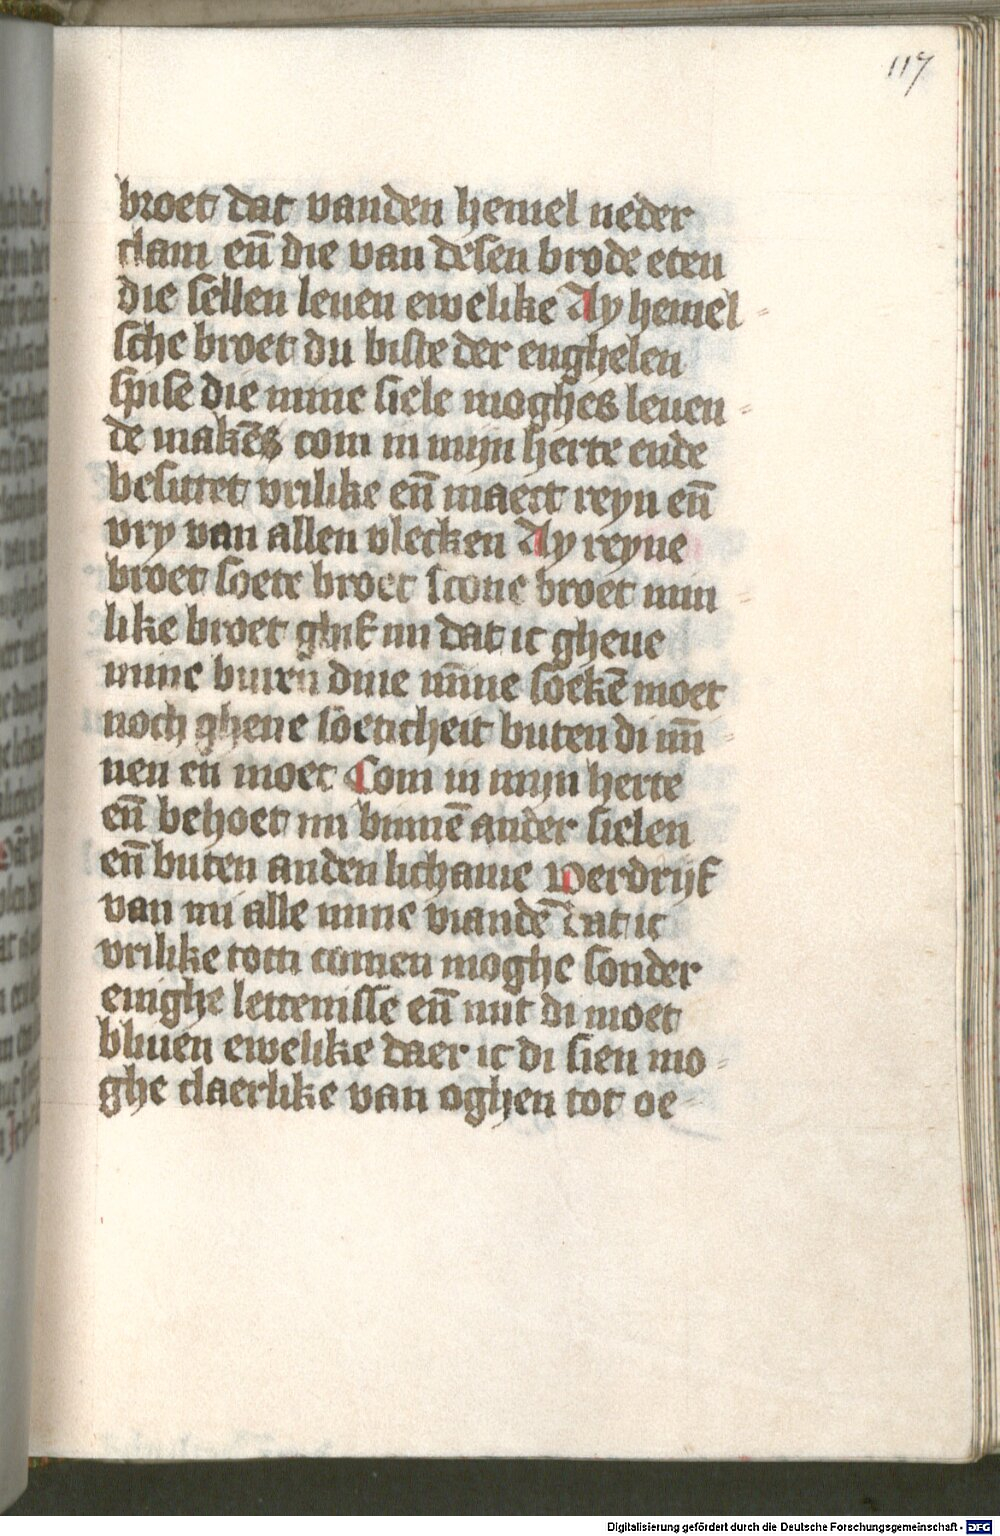 117
broet dat vanden hemel neder
clam en̄ die van desen brode eten
die sellen leuen ewelike Ay hemel-
sche broet du biste der enghelen
spise die mine siele moghes leuen-
de makēs com in mijn herte ende
besittet vrilike en̄ maect reyn en̄
vry van allen vlecken Ay reyne
broet soete broet scone broet min-
like broet ghif mi dat ic ghene
mine buten dine mīne soekē moet
noch ghene soeticheit buten di mīn-
nen en moet Com in mijn herte
en̄ behoet mi binnē ander sielen
en̄ buten anden lichame Verdrijf
van mi alle mine viandē Dat ic
vrilike totti comen moghe sonder
enighe lettenisse en̄ mit di moet
bliuen ewelike daer ic di sien mo-
ghe claerlike van oghen tot oe-
Digitalisierung gefördert durch die Deutsche Forschungsgemeinschaft - DFG